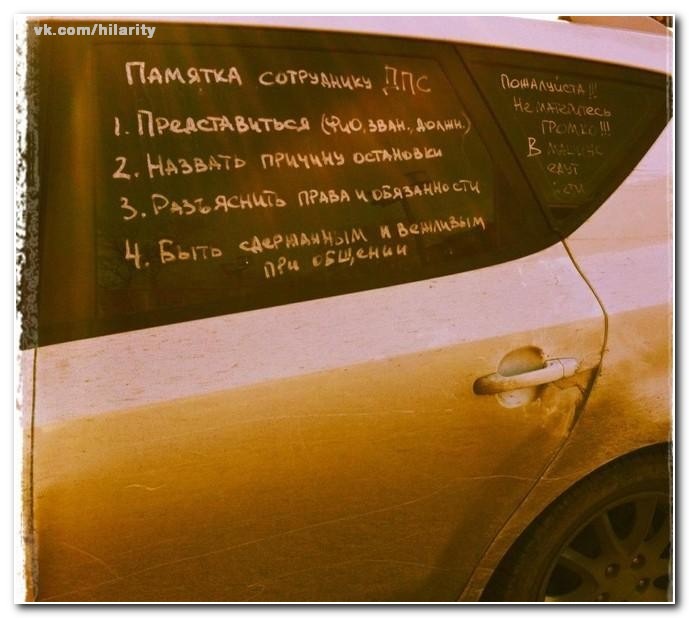 vk.com/hilarity
Памятка сотруднику ДПС
1. Представиться (ФИО, зван., должн.)
2. Назвать причину остановки
3. Разъяснить права и обязанности
4. Быть сдержанным и вежливым
при общении
Пожалуйста!!!
Не матайтесь
громко!!!
В машине
едут
дети